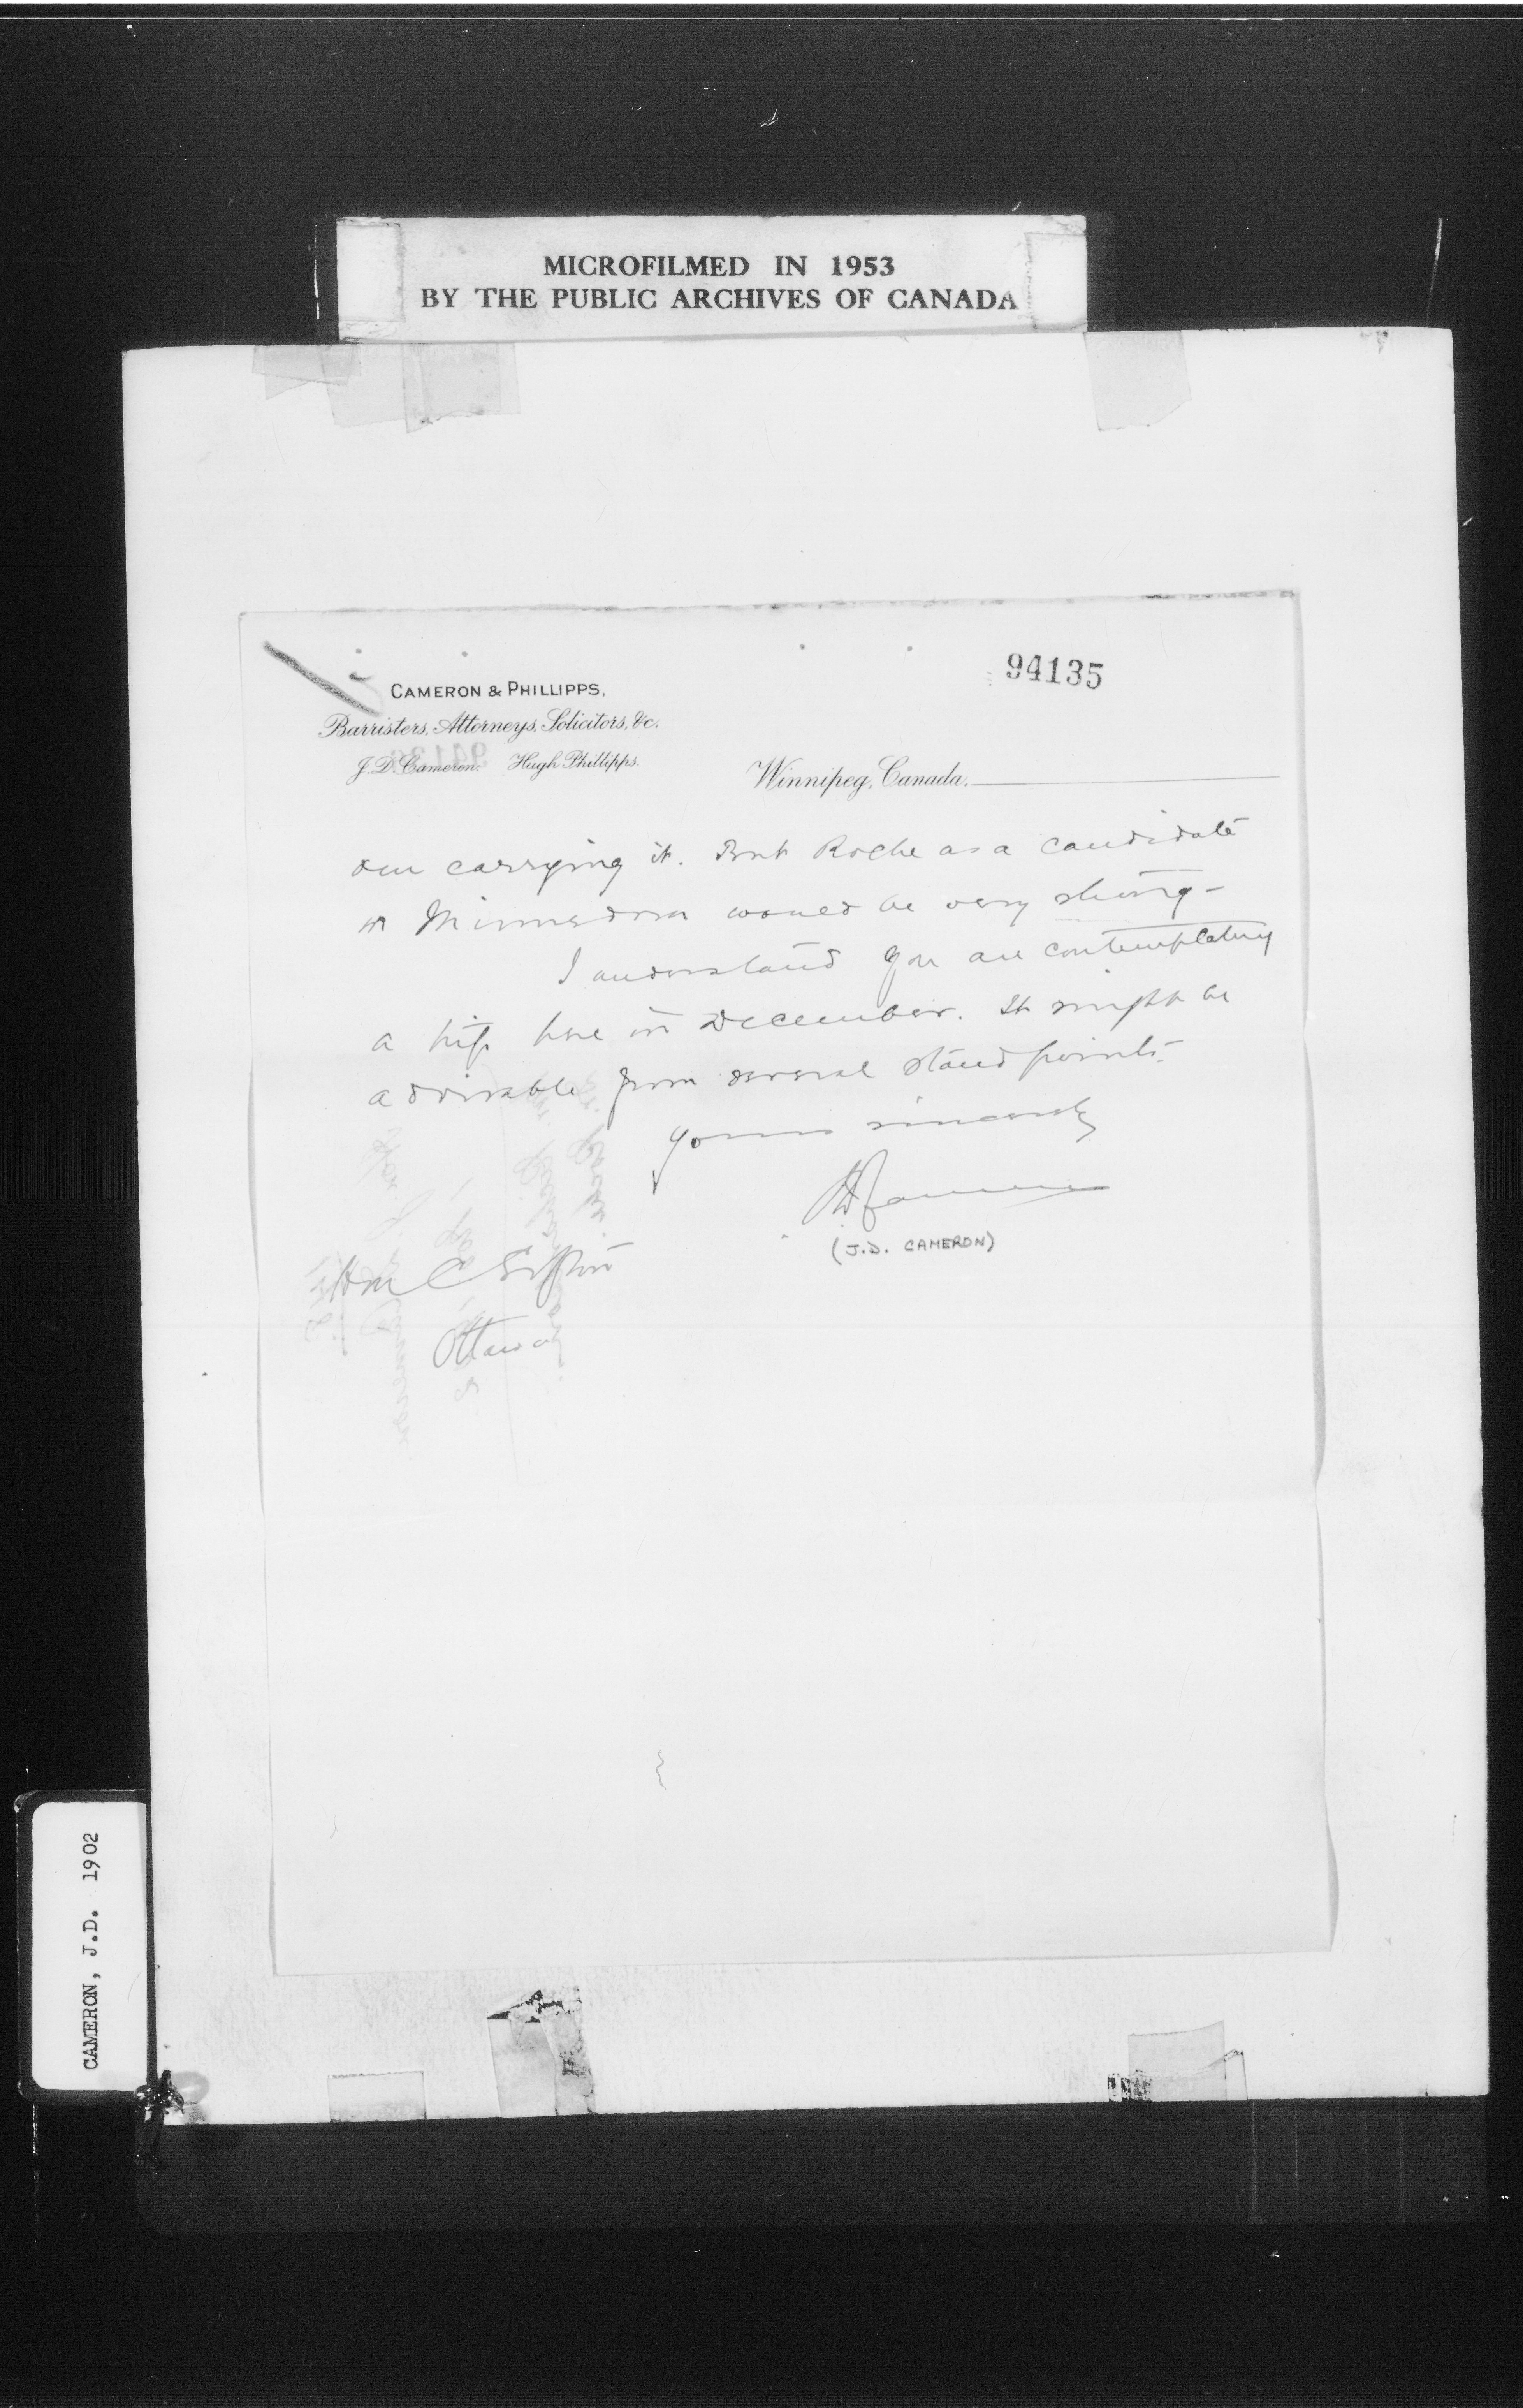 MICROFILMED IN 1953
BY THE PUBLIC ARCHIVES OF CANADA
94135
CAMERON & PHILLIPPS,
Barristers, Attorneys, Solicitors, &c.
J. D. Cameron. Hugh Phillipps.
Winnipeg, Canada,
our carrying it. But Roche as a candidate
in Minnedosa would be very strong -
I understand you are contemplating
a trip here in December. It might be
advisable from several standpoints.
Yours sincerely
JDCameron
(J.D. CAMERON)
Hon C Sifton
Ottawa
CAMERON, J.D. 1902